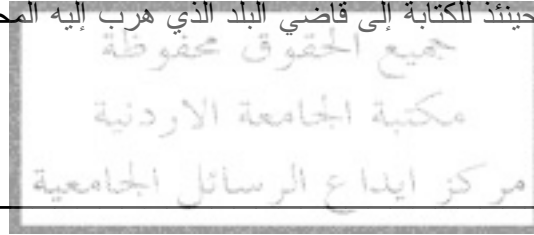 حينئذ للكتابة إلى قاضي البلد الذي هرب إليه
جميع الحقوق محفوظة
مكتبة الجامعة الاردنية
مركز ايداع الرسائل الجامعية